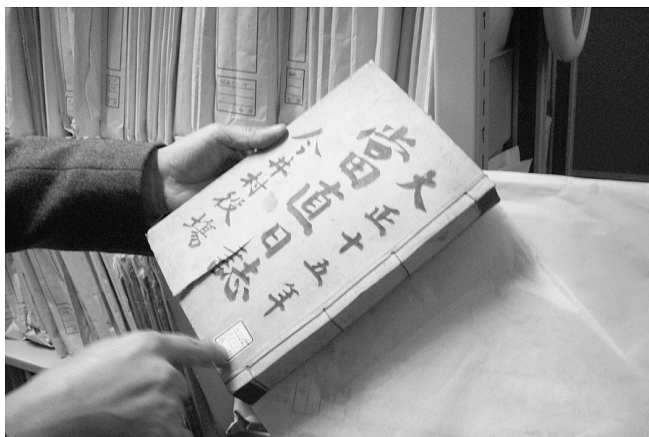 大正十五年
當直日誌
今井村役場